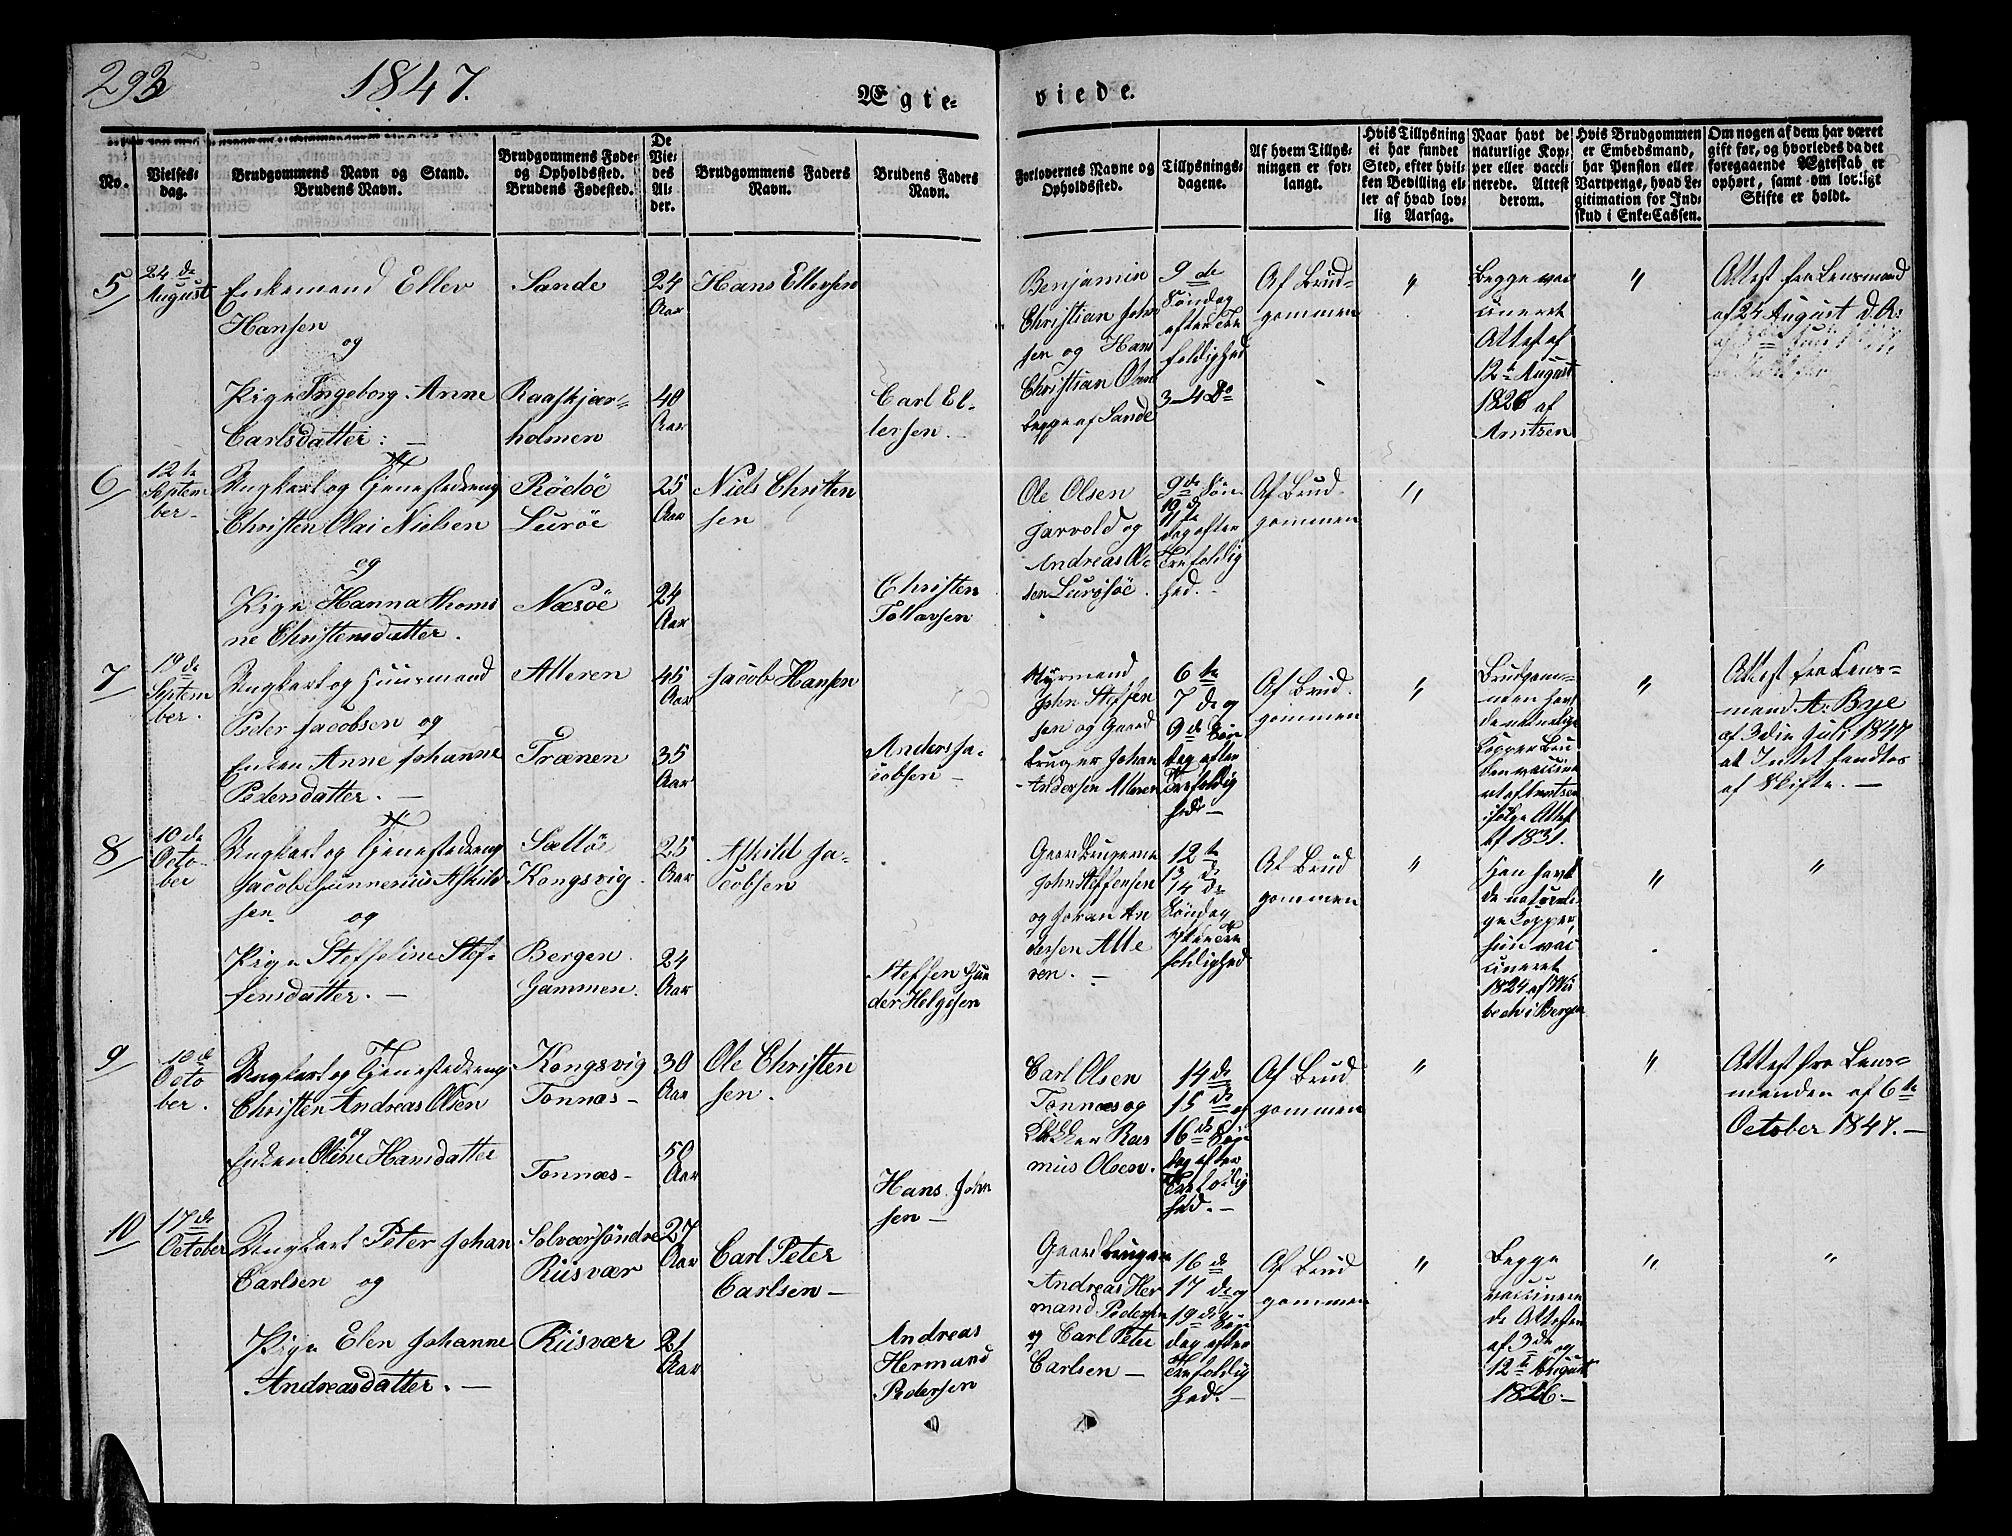 293
1847.
Ægte-
viede.
No.
Vielses-
dag.
Brudgommens Navn og Stand.
Brudens Navn.
Brudgommens Føde-
og Opholdssted.
Brudens Fødested.
De
Vie-
des
Al-
der.
Brudgommens Faders
Navn.
Brudens Faders
Navn.
Forlovernes Navne og
Opholdssted.
Tillysnings-
dagene.
Af hvem Tillys-
ningen er for-
langt.
Hvis Tillysning
ei har fundet
Sted, efter hvil-
ken Bevilling el-
ler af hvad lov-
lig Aarsag.
Naar havt de
naturlige Kop-
per eller vacci-
nerede. Attest
derom.
Hvis Brudgommen
er Embedsmand,
har Pension eller
Vartpenge, hvad Le-
gitimation for Ind-
skud i Enke-Cassen.
Om nogen af dem har været
gift før, og hvorledes da det
foregaaende Ægteskab er
ophørt, samt om lovligt
Skifte er holdt.
5
24 de
August
Enkemand Ellev
Hansen
og
Pige Ingeborg Anne
Carlsdatter: —
Sande
Raaskjær-
holmen
24
Aar
40
Aar
Hans Ellevsen
Carl El-
lersen.
Benjamin
Christian Joh
sen og Hans
Christian Olsen
begge af Sande
9 de
Søndag
efter Tre
foldighed
3-4 Do
Af Brud-
gommen
"
Begge vac
cineret
Attest af
12te August
1826 af
Arntsen
"
Attest fra Lensmand
af 24 August d. A:
6
12te
Septem
ber-
Ungkarl og Tjenestedreng
Christen Olai Nielsen
og
Pige Hanna Thoms
ine Christensdatter.
Rødøe
Lurøe
Næsøe
25
Aar
24
Aar
Niels Christen
sen
Christen
Tollevsen
Ole Olsen
Jarvold og
Andreas Ol-
sen Lurøe
9de Søn-
10 d
11te
dag efter
Trefoldig
hed.-
Af Brud-
gommen
"
7
19 de
Septem
ber.
Ungkarl og Huusmand
Peder Jacobsen og
Enken Anne Johanne
Pedersdatter. —
Alteren
Trænen
45
Aar
35
Aar
Jacob Hansen
Anders Ja-
cobsen —
Styrmand
John Steffen
sen og Gaard
bruger Johan
Andersen Alteren
6 te
7 de og
9 de Søn
dag efter
Trefoldig
hed —
Af Brud.
gommen
"
Brudgom-
men havt
de naturlige
Kopper Bru
den vaccine
ret af Arntsen
ifølge Attest
af 1831.
"
Attest fra Lens-
mand A. Bye
af 3die Juli 1847
at Intet fandtes
af Skifte. —
8
10 de
Octo-
ber
Ungkarl og Tjenestedreng
Jacob Gunnerius Askild
sen. og
Pige Steffeline Stef-
fensdatter. —
Selløe
Kongsvig
Bergen.
Gammen.
25
Aar
24
Aar
Askild Ja-
cobsen
Steffen Gun
der Helgesen
Gaardbrugerne
John Steffensen
og Johan An
dersen Alte
ren. —
12te
13 d
14 de
Søndag
efter Tre
foldighed
Af Brud
gommen
"
Han havt
de naturli
ge Kopper,
hun vac
cineret
1824 af Wis
bech i Bergen
"
"
9
10 d
Octo
ber.
Ungkarl og Tjenestedreng
Christen Andreas Olsen
og
Enken Oline Hansdatter
Kongsvig
Tonnæs-
Tonnæs-
30
Aar
50
Aar
Ole Christen
sen.
Hans John
sen —
Carl Olsen
Tonnæs og
Ras
mus Olsen.
14 de
15 d og
16 de Søn
dag efter
Trefoldig
hed. —
Af Brud
gommen
"
"
Attest fra Lens-
manden af 6te
October 1847. —
10
17 de
October
Ungkarl Peter Johan
Carlsen og
Pige Elen Johanne
Andreasdatter. —
Solværsøndre
Riisvær
Riisvær
27
Aar
21
Aar
Carl Peter
Carlsen —
Andreas
Hermand
Pedersen
Gaardbruger
Andreas Her
mand Pedersen
og Carl Peter
Carlsen —
16 de
17 de og
19 de Søn
dag efter
Trefoldig
hed. —
Af Brud
gommen
"
Begge
vaccinere
de Attester
af 3de og
12te August
1826. —
"
"